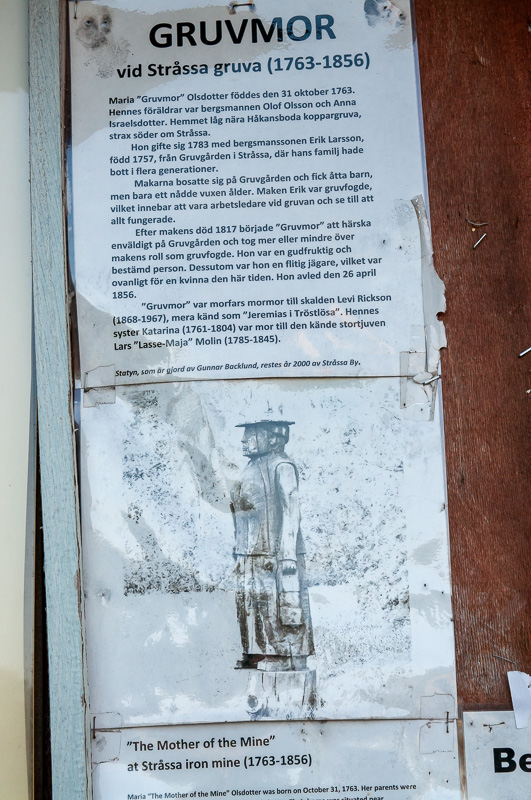 GRUVMOR
vid Stråssa gruva (1763-1856)
Maria "Gruvmor" Olsdotter föddes den 31 oktober 1763.
Hennes föräldrar var bergsmannen Olof Olsson och Anna
Israelsdotter. Hemmet låg nära Håkansboda koppargruva,
strax söder om Stråssa.
Hon gifte sig 1783 med bergsmanssonen Erik Larsson,
född 1757, från Gruvgården i Stråssa, där hans familj hade
bott i flera generationer.
Makarna bosatte sig på Gruvgården och fick åtta barn,
men bara ett nådde vuxen ålder. Maken Erik var gruvfogde,
vilket innebar att vara arbetsledare vid gruvan och se till att
allt fungerade.
Efter makens död 1817 började "Gruvmor" att härska
enväldigt på Gruvgården och tog mer eller mindre över
makens roll som gruvfogde. Hon var en gudfruktig och
bestämd person. Dessutom var hon en flitig jägare, vilket var
ovanligt för en kvinna den här tiden. Hon avled den 26 april
1856.
"Gruvmor" var morfars mormor till skalden Levi Rickson
(1868-1967), mera känd som "Jeremias i Tröstlösa". Hennes
syster Katarina (1761-1804) var mor till den kände stortjuven
Lars "Lasse-Maja" Molin (1785-1845).
Statyn, som är gjord av Gunnar Backlund, restes år 2000 av Stråssa By.
"The Mother of the Mine"
at Stråssa iron mine (1763-1856)
Maria "The Mother of the Mine" Olsdotter was born on October 31, 1763. Her parents were
Be